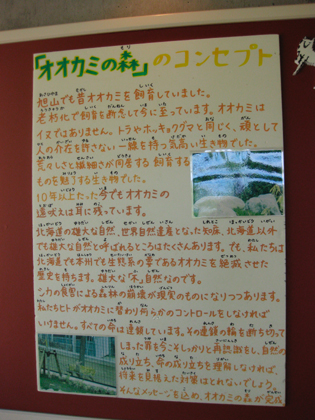 「オオカミの森」のコンセプト
旭山でも昔オオカミを飼育していました。
老朽化で飼育を断念して今に至っています。オオカミは
イヌではありません。トラやホッキョクグマと同じく、頑として
人の存在を許さない一線を持つ気高い生き物でした。
荒々しさと繊細さが同居する 飼育する
ものを魅了する生き物でした。
10年以上たった今でもオオカミの
遠吠えは耳に残っています。
北海道の雄大な自然、世界自然遺産となった知床、北海道以外
でも雄大な自然と呼ばれるところはたくさんあります。でも、私たちは
北海道でも本州でも生態系の要であるオオカミを絶滅させた
歴史を持ちます。雄大な「不」自然なのです。
シカの食害による森林の崩壊が現実のものになりつつあります。
私たちヒトがオオカミに替わり何らかのコントロールをしなければ
いけません。すべての命は連鎖しています。その連鎖の輪を断ち切って
しまった罪を今こそしっかりと再認識をし、自然の
成り立ち、命の成り立ちを理解しなければ、
将来を見据えた対策はとれないでしょう。
そんなメッセージを込め、オオカミの森が完成